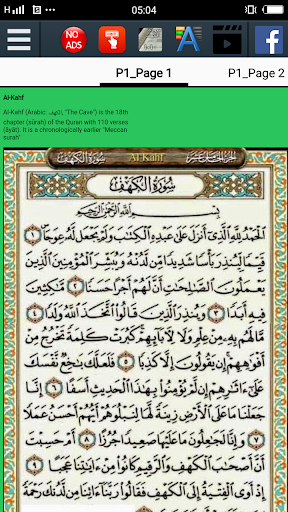 05:04
NO
ADS
A
P1_Page 1
P1_Page 2
Al-Kahf
Al-Kahf (Arabic: الكهف, "The Cave") is the 18th
chapter (sūrah) of the Quran with 110 verses
(āyāt). It is a chronologically earlier "Meccan
surah"
سورة الكهف
Al-Kahf
سُورَةُ الكَهْفِ
بِسْمِ اللَّهِ الرَّحْمَٰنِ الرَّحِيمِ
ٱلْحَمْدُ لِلَّهِ ٱلَّذِىٓ أَنزَلَ عَلَىٰ عَبْدِهِ ٱلْكِتَٰبَ وَلَمْ يَجْعَل لَّهُۥ عِوَجَا ۜ ١
قَيِّمًا لِّيُنذِرَ بَأْسًا شَدِيدًا مِّن لَّدُنْهُ وَيُبَشِّرَ ٱلْمُؤْمِنِينَ ٱلَّذِينَ
يَعْمَلُونَ ٱلصَّٰلِحَٰتِ أَنَّ لَهُمْ أَجْرًا حَسَنًا ٢ مَّٰكِثِينَ
فِيهِ أَبَدًا ٣ وَيُنذِرَ ٱلَّذِينَ قَالُوا۟ ٱتَّخَذَ ٱللَّهُ وَلَدًا ٤
مَّا لَهُم بِهِۦ مِنْ عِلْمٍ وَلَا لِءَابَآئِهِمْ كَبُرَتْ كَلِمَةً تَخْرُجُ مِنْ
أَفْوَٰهِهِمْ إِن يَقُولُونَ إِلَّا كَذِبًا ٥ فَلَعَلَّكَ بَٰخِعٌ نَّفْسَكَ
عَلَىٰٓ ءَاثَٰرِهِمْ إِن لَّمْ يُؤْمِنُوا۟ بِهَٰذَا ٱلْحَدِيثِ أَسَفًا ٦ إِنَّا
جَعَلْنَا مَا عَلَى ٱلْأَرْضِ زِينَةً لَّهَا لِنَبْلُوَهُمْ أَيُّهُمْ أَحْسَنُ عَمَلًا
٧ وَإِنَّا لَجَٰعِلُونَ مَا عَلَيْهَا صَعِيدًا جُرُزًا ٨ أَمْ حَسِبْتَ
أَنَّ أَصْحَٰبَ ٱلْكَهْفِ وَٱلرَّقِيمِ كَانُوا۟ مِنْ ءَايَٰتِنَا عَجَبًا ٩
إِذْ أَوَى ٱلْفِتْيَةُ إِلَى ٱلْكَهْفِ فَقَالُوا۟ رَبَّنَآ ءَاتِنَا مِن لَّدُنكَ رَحْمَةً